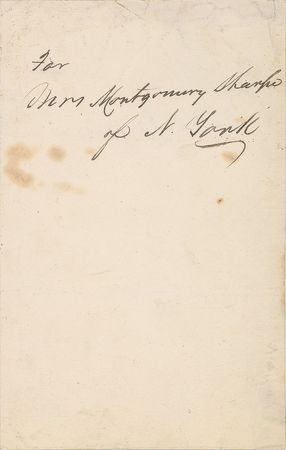 For
Mrs Montgomery Sharpe
of N. York